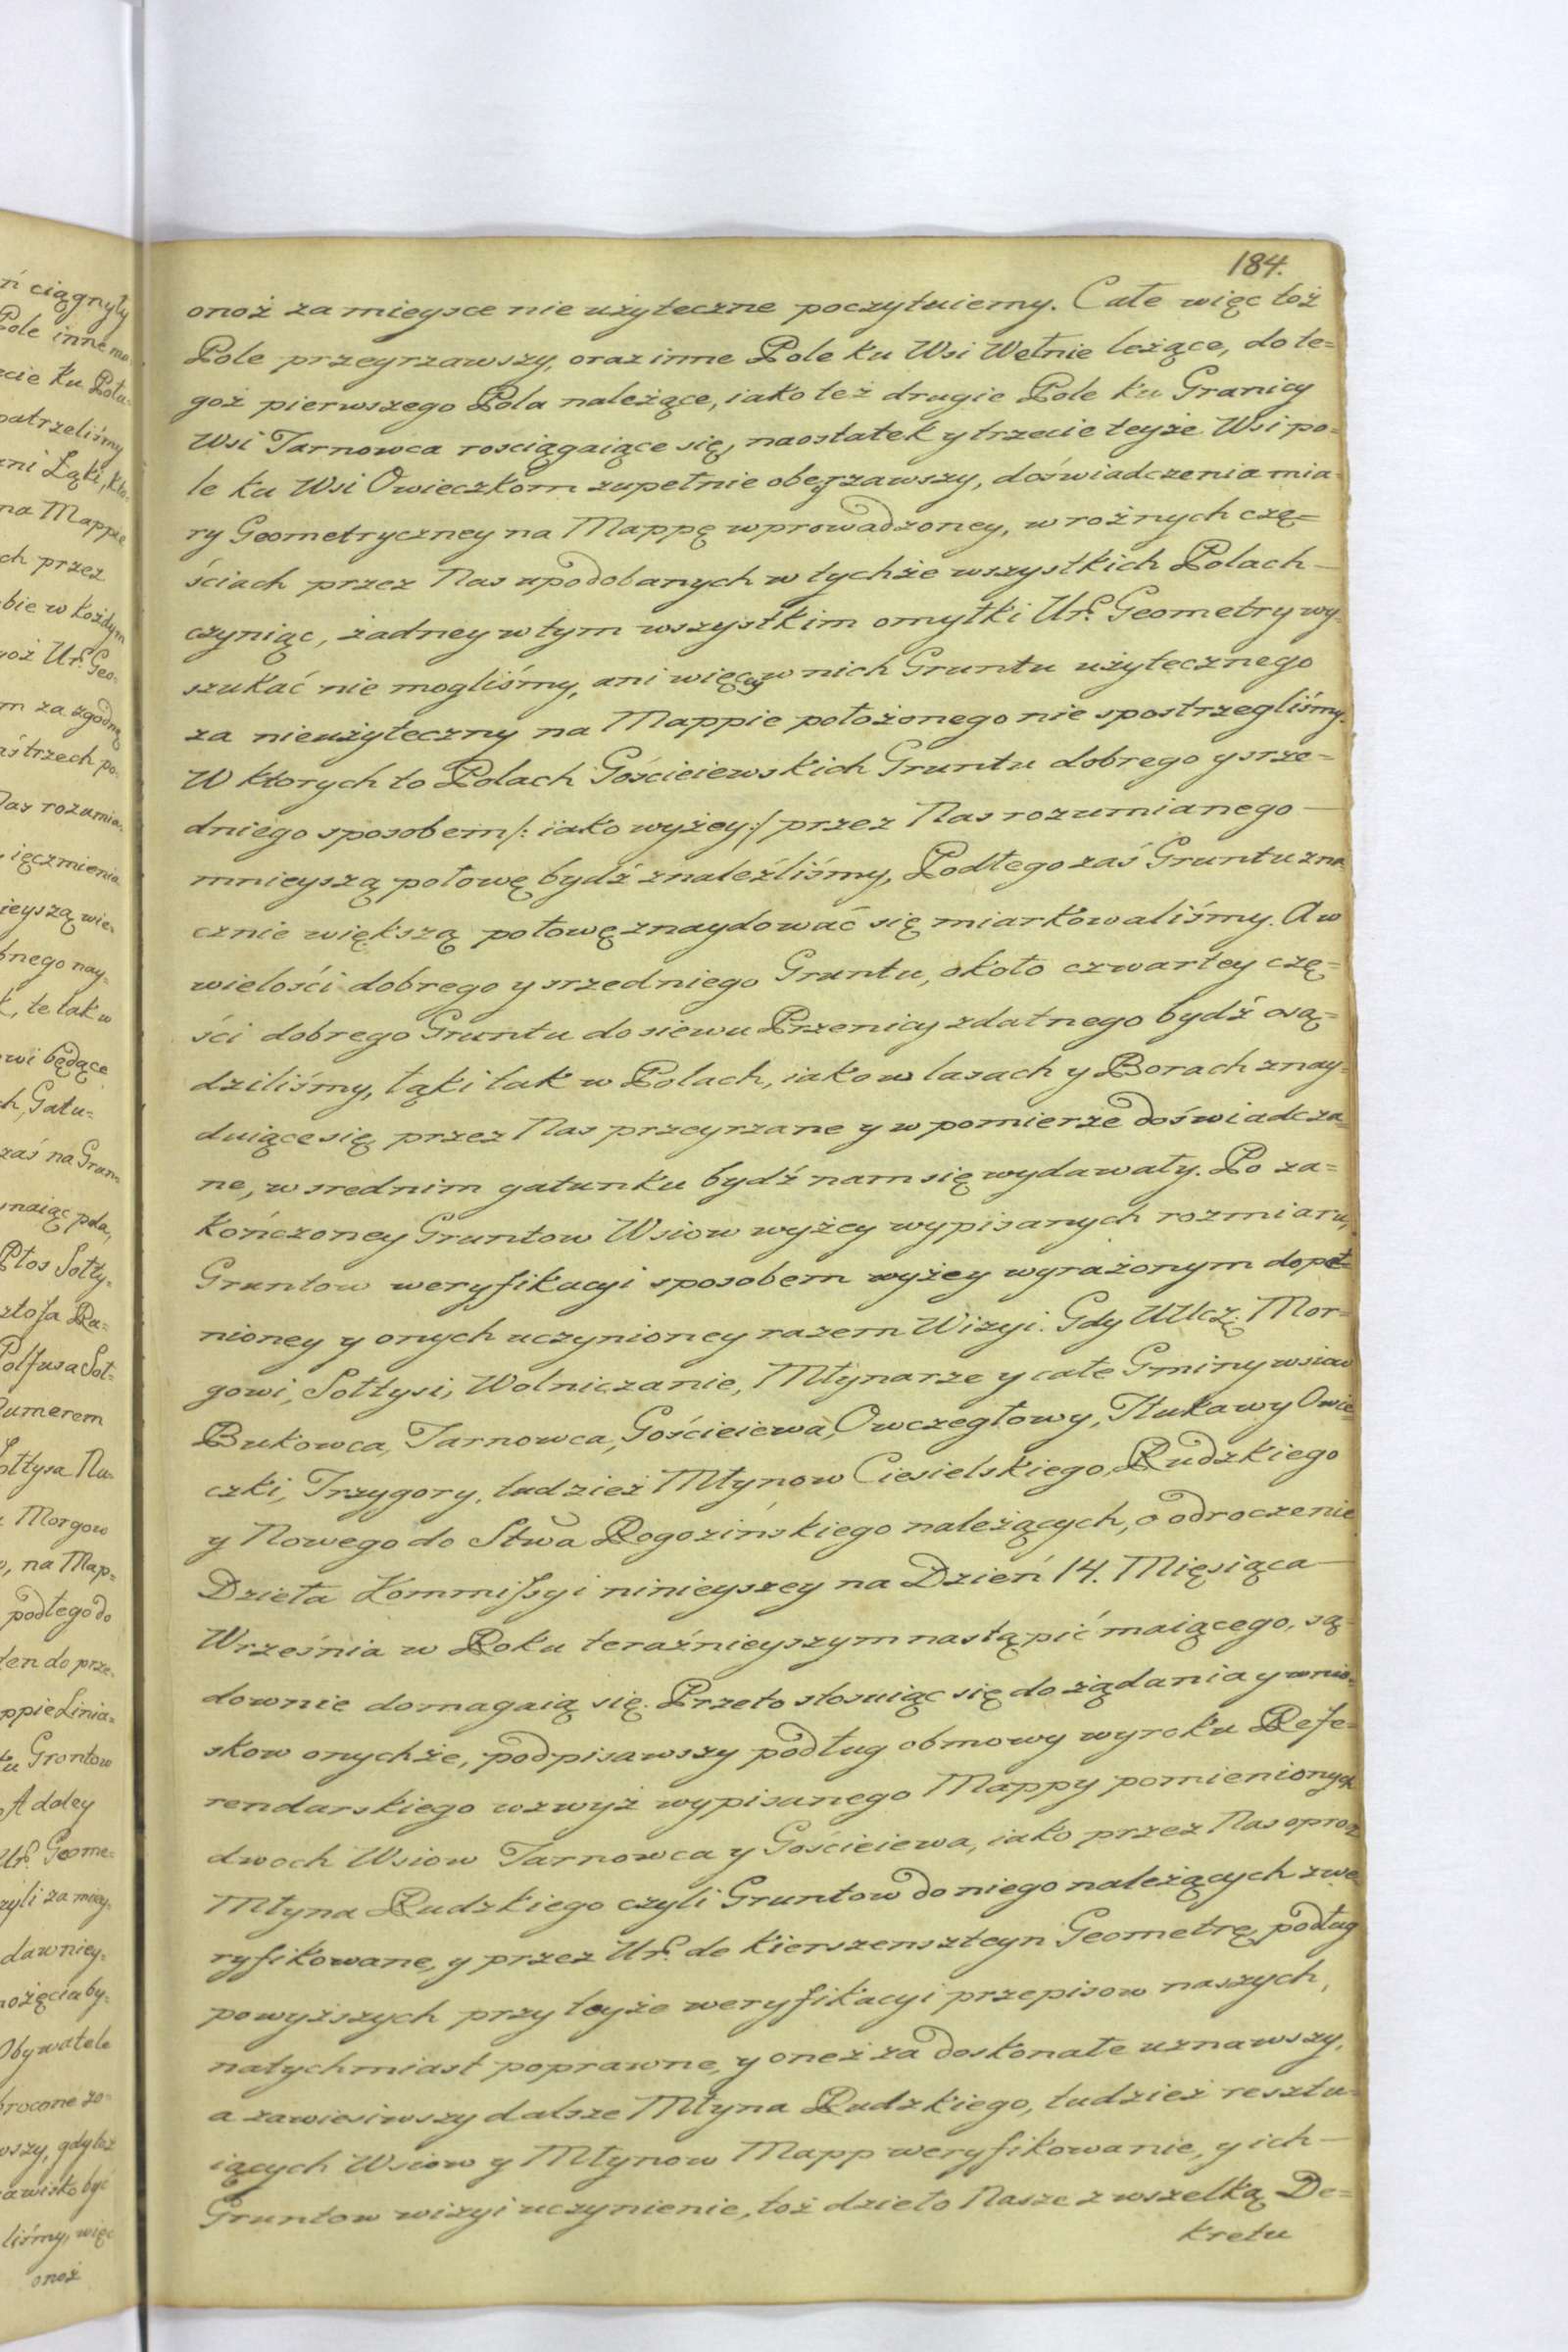 184.
onoż za mieysce nie użyteczne poczytuiemy. Całe więc toż
Pole przeyrzawszy, oraz inne Pole ku Wsi Wełnie leżące, do te=
goż pierwszego Pola należące, iako też drugie Pole ku Granicy
Wsi Tarnowca rosciągaiące się, naostatek y trzecie teyże Wsi po=
le ku Wsi Owieczkom zupełnie obeyrzawszy, doświadczenia mia=
ry Geometryczney na Mappę wprowadzoney, w rożnych czę=
ściach przez Nas upodobanych w tychże wszystkich Polach —
czyniąc, żadney w tym wszystkim omyłki Ur. Geometry wy=
szukać nie mogliśmy, ani więcey w nich Gruntu użytecznego
za nieużyteczny na Mappie położonego nie spostrzegliśmy.
W ktorych to Polach Gościeiewskich Gruntu dobrego y srze=
dniego sposobem /: iako wyżey :/ przez Nas rozumianego —
mnieyszą połowę bydź znaleźliśmy, Podłego zaś Gruntu zna
cznie większą połowę znaydować się miarkowaliśmy. A w
wielości dobrego y srzedniego Gruntu, około czwartey czę=
ści dobrego Gruntu do siewu Przenicy zdatnego bydź osą=
dziliśmy, łąki tak w Polach, iako w lasach y Borach znay=
duiące się przez Nas przeyrzane y w pomierze doświadcza=
ne, w srednim gatunku bydź nam się wydawały. Po za=
kończoney Gruntow Wsiow wyżey wypisanych rozmiaru,
Gruntow weryfikacyi sposobem wyżey wyrażonym dopeł=
nioney y onych uczynioney razem Wizyi. Gdy UUcz: Mor=
gowi, Sołtysi, Wolniczanie, Młynarze y całe Gminy wsiow
Bukowca, Tarnowca, Gościeiewa, Owczegłowy, Tłukawy Owie
czki, Trzygory, tudzież Młynow Ciesielskiego, Rudzkiego
y Nowego do Stwa Rogozińskiego należących, o odroczenie
Dzieła Kommissyi ninieyszey na Dzień 14. Miesiąca —
Września w Roku teraźnieyszym nastąpić maiącego, są=
downie domagaią się. Przeto stosuiąc się do żądania y wnio=
skow onychże, podpisawszy podług obmowy wyroku Refe=
rendarskiego wzwyż wypisanego Mappy pomienionych
dwoch Wsiow Tarnowca y Gościeiewa, iako przez Nas oproz
Młyna Rudzkiego czyli Gruntow do niego należących zwe
ryfikowane, y przez Ur. de Kierszensztcyn Geometrę podług
powyższych przy teyże weryfikacyi przepisow naszych,
natychmiast poprawne, y oneż za doskonałe uznawszy,
a zawiesiwszy dalsze Młyna Rudzkiego, tudzież resztu=
iących Wsiow y Młynow Mapp weryfikowanie, y ich —
Gruntow wizyi uczynienie, toż dzieło Nasze z wszelką De=
kretu
ń ciągnyły
Pole inne
cie ku Poła=
patrzeliśmy
ni Łąki, kto=
na Mappie
ch przez
bie w każdym
goż Ur. Geo=
m za zgodną
aś trzech po=
Nas rozumia=
ięczmienia
ieyszą wie=
bnego nay=
, te tak w
wi będące
h, Gatu=
zaś na Grun=
naiąc pola,
Ptos Sołty=
Sołtysa Na=
Morgow
, na Map=
podłego do
ten do prze=
ppie Linia=
tu Grontow
A daley
Ur. Geome=
zyli za miey=
dawniey=
ożęcia by=
Obywatele
rocone zo=
wszy, gdy też
awisko być
liśmy, więc
onoż